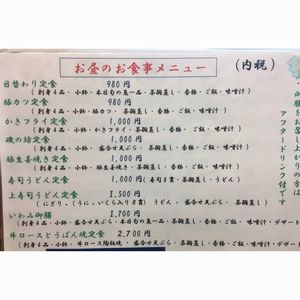 お昼のお食事メニュー
(内税)
日替わり定食 980円
(刺身4品・小鉢・本日旬の煮一品・茶碗蒸し・香物・ご飯・味噌汁)
豚カツ定食 980円
(刺身4品・小鉢・豚カツ・茶碗蒸し・香物・ご飯・味噌汁)
かきフライ定食 1,000円
(刺身4品・小鉢・かきフライ・茶碗蒸し・香物・ご飯・味噌汁)
磯の坊定食 1,000円
(刺身4品・小鉢・盛合せ天ぷら・茶碗蒸し・香物・ご飯・味噌汁)
豚生姜焼き定食 1,000円
寿司うどん定食 1,000円 (寿司8貫・茶碗蒸し・うどん)
上寿司うどん定食 1,500円
(にぎり・うに・いくら入り8貫)うどん・盛合せ天ぷら・茶碗蒸し
いわみ御膳 1,700円
(刺身4品・小鉢・盛合せ天ぷら・本日旬の煮一品・茶碗蒸し・香物・ご飯・味噌汁・デザート
牛ロースとうばん焼定食 2,700円
(刺身4品・小鉢・牛ロース陶板焼・盛合せ天ぷら・茶碗蒸し・香物・ご飯・味噌汁・デザート
アフタードリンク付です